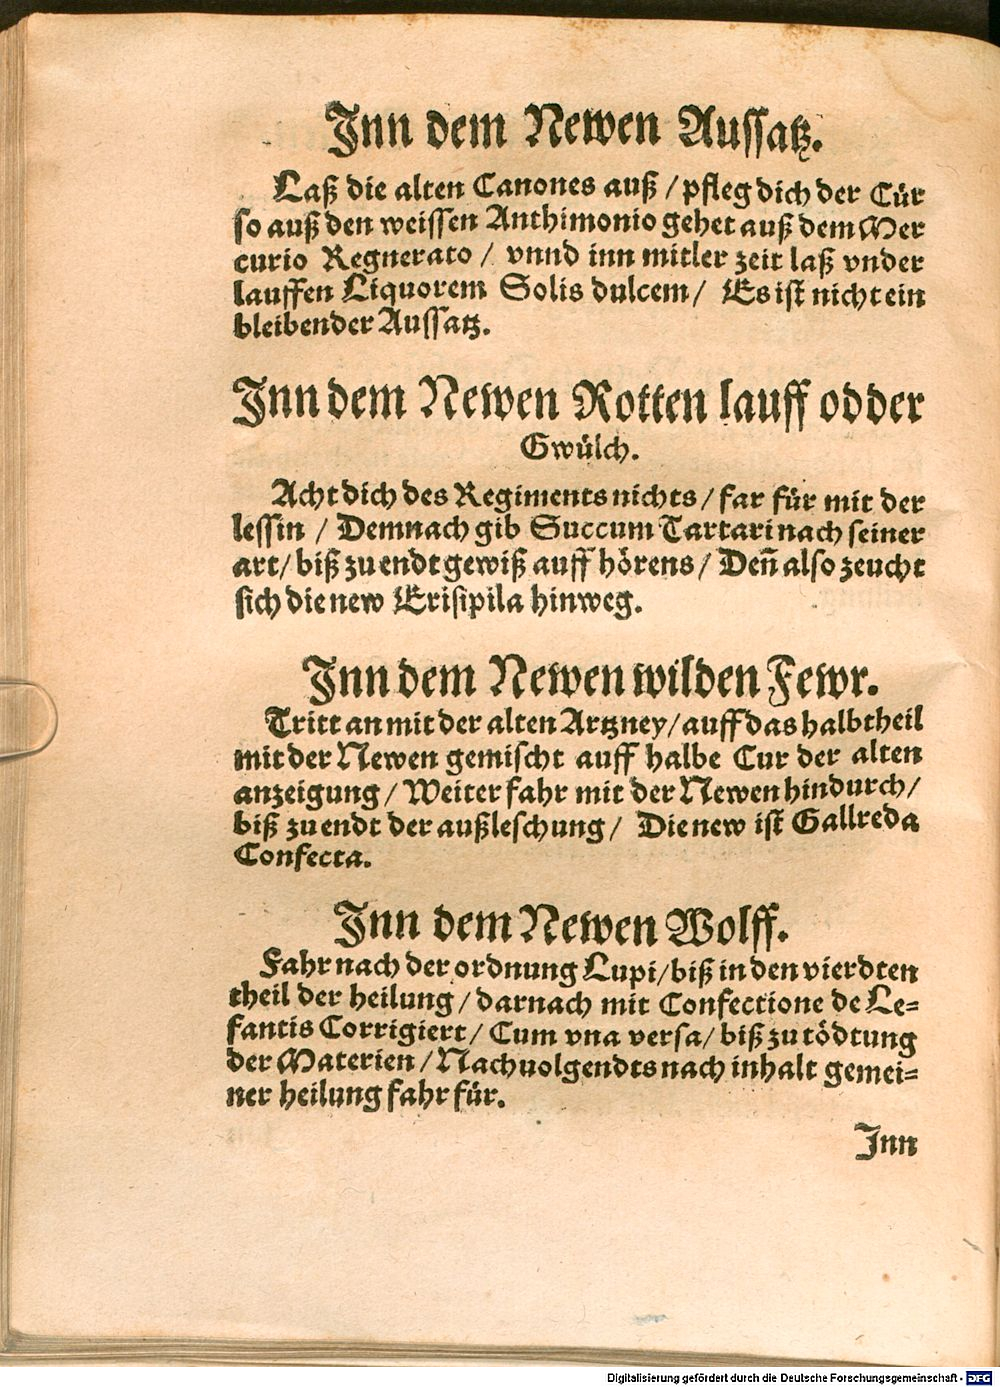 Inn dem Newen Aussatz.
Laß die alten Canones auß / pfleg dich der Cür
so auß den weissen Anthimonio gehet auß dem Mer
curio Regnerato / vnnd inn mitler zeit laß vnder
lauffen Liquorem Solis dulcem / Es ist nicht ein
bleibender Aussatz.
Inn dem Newen Rotten lauff odder
Gwülch.
Acht dich des Regiments nichts / far für mit der
lessin / Demnach gib Succum Tartari nach seiner
art / biß zu endt gewiß auff hörens / Deñ also zeucht
sich die new Erisipila hinweg.
Inn dem Newen wilden Fewr.
Tritt an mit der alten Artzney / auff das halbtheil
mit der Newen gemischt auff halbe Cur der alten
anzeigung / Weiter fahr mit der Newen hindurch /
biß zu endt der außleschung / Die new ist Gallreda
Confecta.
Inn dem Newen Wolff.
Fahr nach der ordnung Lupi / biß in den vierdten
theil der heilung / darnach mit Confectione de Le=
fantis Corrigiert / Cum vna versa / biß zu tödtung
der Materien / Nachuolgendts nach inhalt gemei=
ner heilung fahr für.
Inn
Digitalisierung gefördert durch die Deutsche Forschungsgemeinschaft - DFG